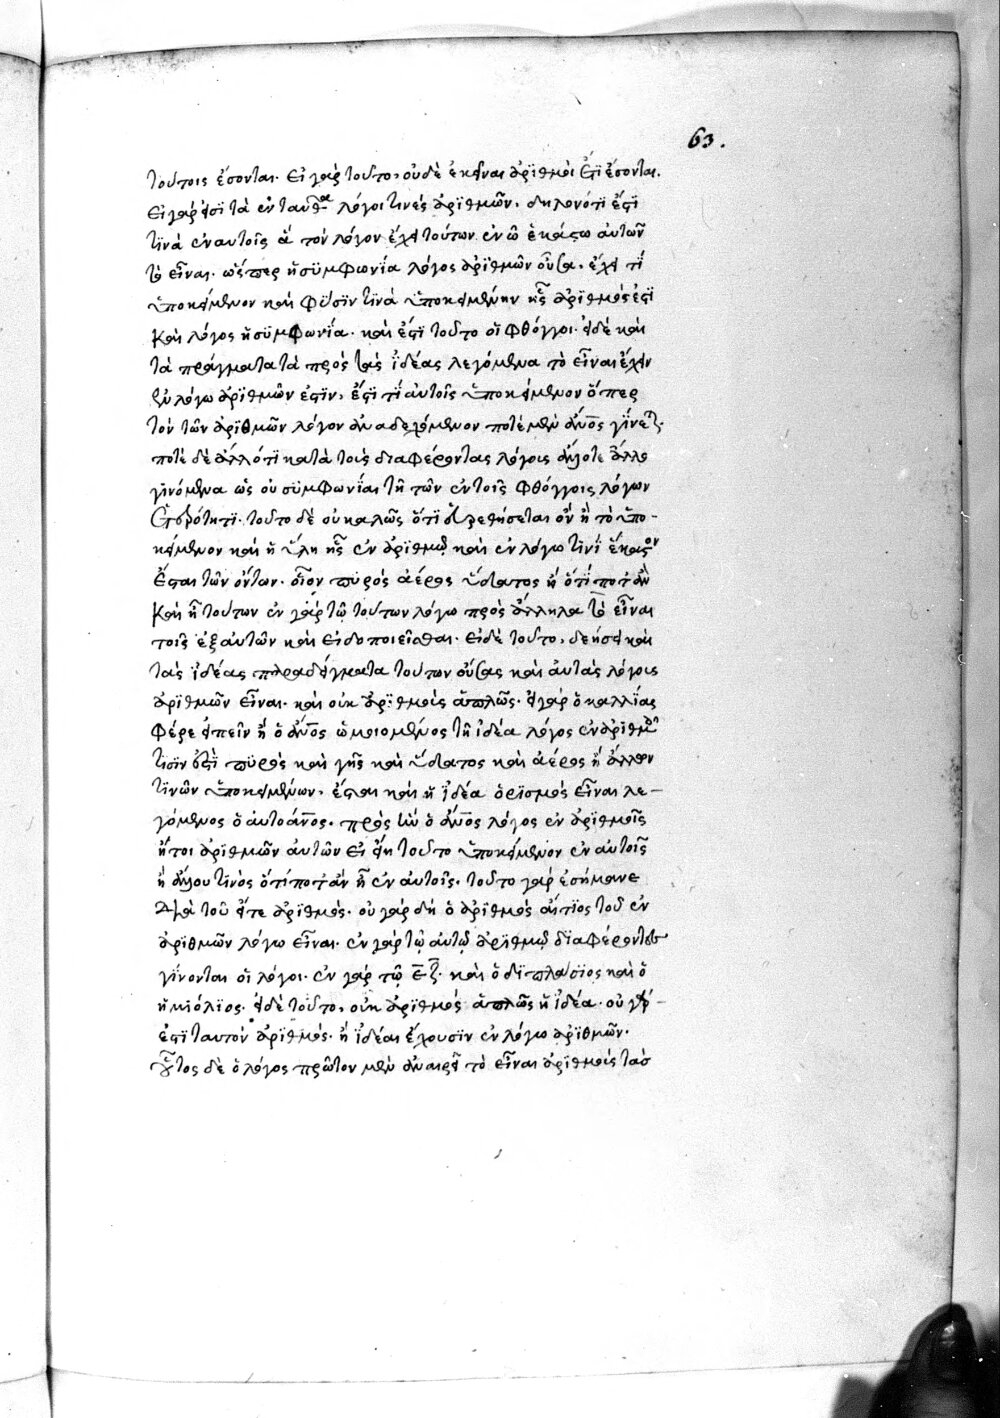 63.
τούτοις ἔσονται. εἰ γὰρ τοῦτο, οὐδὲ ἐκεῖναι ἀριθμοὶ ἔτι ἔσονται.
εἰ γάρ εἰσι τὰ ἐνταῦθα λόγοι τινὲς ἀριθμῶν, δηλονότι ἔστι
τινὰ ἐν αὐτοῖς ἃ τὸν λόγον ἔχει τούτων ἐν ᾧ ἑκάστω αὐτῶν
τὸ εἶναι. ὥσπερ ἡ συμφωνία λόγος ἀριθμῶν οὖσα, ἔχει τι
ὑποκείμενον καὶ φύσιν τινὰ ὑποκειμένην ἧς ἀριθμός ἐστι
καὶ λόγος ἡ συμφωνία. καὶ ἔστι τοῦτο οἱ φθόγγοι. εἰ δὲ καὶ
τὰ πράγματα τὰ πρὸς τὰς ἰδέας λεγόμενα τὸ εἶναι ἔχειν
ἐν λόγω ἀριθμῶν ἐστιν, ἔστι τι αὐτοῖς ὑποκείμενον ὅπερ
τὸν τῶν ἀριθμῶν λόγον ἀναδεχόμενον ποτὲ μὲν ἄνος γίνεται.
ποτὲ δὲ ἄλλό τι κατὰ τοὺς διαφέροντας λόγους ἄλλοτε ἄλλο
γινόμενα ὡς αἱ συμφωνίαι τῆ τῶν ἐν τοῖς φθόγγοις λόγων
ἑτερότητι. τοῦτο δὲ οὐ καλῶς ὅτι εὑρεθήσεται ὂν ἢ τὸ ὑπο-
κείμενον καὶ ἡ ὕλη ἧς ἐν ἀριθμῷ καὶ ἐν λόγω τινὶ ἕκαστον
ἔσται τῶν ὄντων. οἷον πυρὸς ἀέρος ὕδατος ἢ ὅτί ποτ' ἂν
καὶ ᾖ τούτων ἐν γὰρ τῷ τούτων λόγω πρὸς ἄλληλα τὸ εἶναι
τοῖς ἐξ αὐτῶν καὶ εἰδοποιεῖσθαι. εἰ δὲ τοῦτο, δεήσει καὶ
τὰς ἰδέας παραδείγματα τούτων οὔσας καὶ αὐτὰς λόγους
ἀριθμῶν εἶναι. καὶ οὐκ ἀριθμοὺς ἁπλῶς. εἰ γὰρ ὁ καλλίας
φέρε εἰπεῖν ἢ ὁ ἄνος ὡμοιωμένος τῆ ἰδέα λόγος ἐν ἀριθμοῖ
τισίν ἐστι πυρὸς καὶ γῆς καὶ ὕδατος καὶ ἀέρος ἢ ἄλλων
τινῶν ὑποκειμένων, ἔσται καὶ ἡ ἰδέα ὁρισμὸς εἶναι λε-
γόμενος ὁ αὐτοάνος. πρὸς ὃν ὁ ἄνος λόγος ἐν ἀριθμοῖς
ἤτοι ἀριθμῶν αὐτῶν εἰ εἴη τοῦτο ὑποκείμενον ἐν αὐτοῖς
ἢ ἄλλου τινὸς ὅτί ποτ' ἂν ᾖ ἐν αὐτοῖς. τοῦτο γὰρ ἐσήμανε
διὰ τοῦ εἴτε ἀριθμός. οὐ γὰρ δὴ ὁ ἀριθμὸς αἴτιος τοῦ ἐν
ἀριθμῶν λόγω εἶναι. ἐν γὰρ τῷ αὐτῷ ἀριθμῷ διαφέροντες
γίνονται οἱ λόγοι. ἐν γὰρ τῷ ἓξ καὶ ὁ διπλάσιος καὶ ὁ
ἡμιόλιος. εἰ δὲ τοῦτο, οὐκ ἀριθμὸς ἁπλῶς ἡ ἰδέα. οὐ γάρ
ἐστι ταυτὸν ἀριθμός. ἢ ἰδέαι ἔχουσιν ἐν λόγω ἀριθμῶν.
οὗτος δὲ ὁ λόγος πρῶτον μὲν ἀναιρεῖ τὸ εἶναι ἀριθμοὺς τὰς